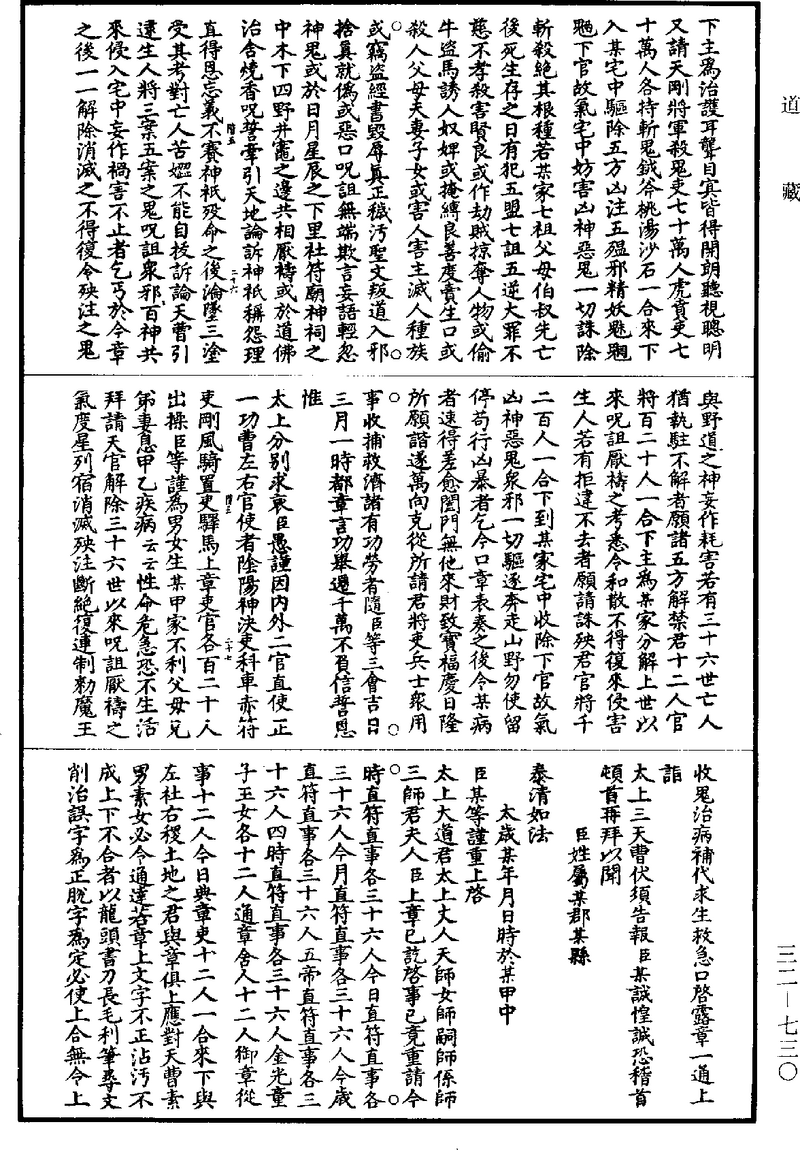 道藏
下主爲治護耳聾目冥皆得開朗聽視聰明
又請天剛將軍殺鬼吏七十萬人虎賁吏七
十萬人各持斬鬼鉞斧桃湯沙石一合來下
入某宅中驅除五方凶注五瘟邪精妖魅魍
魎下官故氣宅中妨害凶神惡鬼一切誅除
斬殺絕其根種若某家七祖父母伯叔先亡
後死生存之日有犯五盟七詛五逆大罪不
慈不孝殺害賢良或作劫賊掠奪人物或偷
牛盜馬誘人奴婢或掩縛良善度賣生口或
殺人父母夫妻子女或害人害主滅人種族
或竊盜經書毀辱真正穢污聖文叛道入邪
捨真就僞或惡口呪詛無端欺言妄語輕忽
神鬼或於日月星辰之下里社符廟神祠之
中木下四野井竈之邊共相厭禱或於道佛
治舍燒香呪誓牽引天地論訴神祇稱怨理
直得恩忘義不賽神祇歿命之後淪墜三塗
受其考對亡人苦㦬不能自拔訴論天曹引
逮生人將三案五案之鬼呪詛衆邪百神共
來侵入宅中妄作禍害不止者乞丐於今章
之後一一解除消滅之不得復令殃注之鬼
與野道之神妄作耗害若有三十六世亡人
猶執駐不解者願請五方解禁君十二人官
將百二十人一合下主爲某家分解上世以
來呪詛厭禱之考悉令和散不得復來侵害
生人若有拒違不去者願請誅殃君官將千
二百人一合下到某家宅中收除下官故氣
凶神惡鬼衆邪一切驅逐奔走山野勿使留
停苟行凶暴者乞今口章表奏之後令某病
者速得差愈闔門無他來財致寶福慶日隆
所願諧遂萬向克從所請君將吏兵士衆用
事收捕救濟諸有功勞者隨臣等三會吉日
三月一時都章言功舉遷千萬不負信誓恩
惟
太上分別求哀臣愚謹因内外二官直使正
一功曹左右官使者陰陽神決吏科車赤符
吏剛風騎置吏驛馬上章吏官各百二十人
出操臣等謹爲男女生某甲家不利父母兄
弟妻息甲乙疾病云云性命危急恐不生活
拜請天官解除三十六世以來呪詛厭禱之
氣度星列宿消滅殃注斷絕復連制勑魔王
收鬼治病補代求生救急口啓露章一通上
詣
太上三天曹伏須告報臣某誠惶誠恐稽首
頓首再拜以聞
臣姓屬某郡某縣
泰清如法
太歲某年月日時於某甲中
臣某等謹重上啓
太上大道君太上丈人天師女師嗣師係師
三師君夫人臣上章已訖啓事已竟重請今
時直符直事各三十六人今日直符直事各
三十六人今月直符直事各三十六人今歲
直符直事各三十六人五帝直符直事各三
十六人四時直符直事各三十六人金光童
子玉女各十二人通章舍人十二人御章從
事十二人今日典章吏十二人一合來下與
左社右稷土地之君與章俱上應對天曹素
男素女必令通達若章上文字不正沾污不
成上下不合者以龍頭書刀長毛利筆尋文
削治誤字爲正脫字爲定必使上合無令上
三二—七三〇